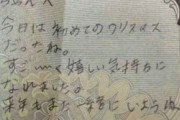 今日は初めてのクリスマス
だったね。
すご〜く嬉しい気持ちに
なれました。
来年もまた一緒に いようね